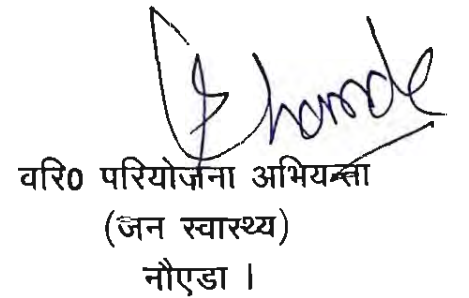 वरि0 परियोजना अभियन्ता
(जन स्वास्थ्य)
नौएडा ।